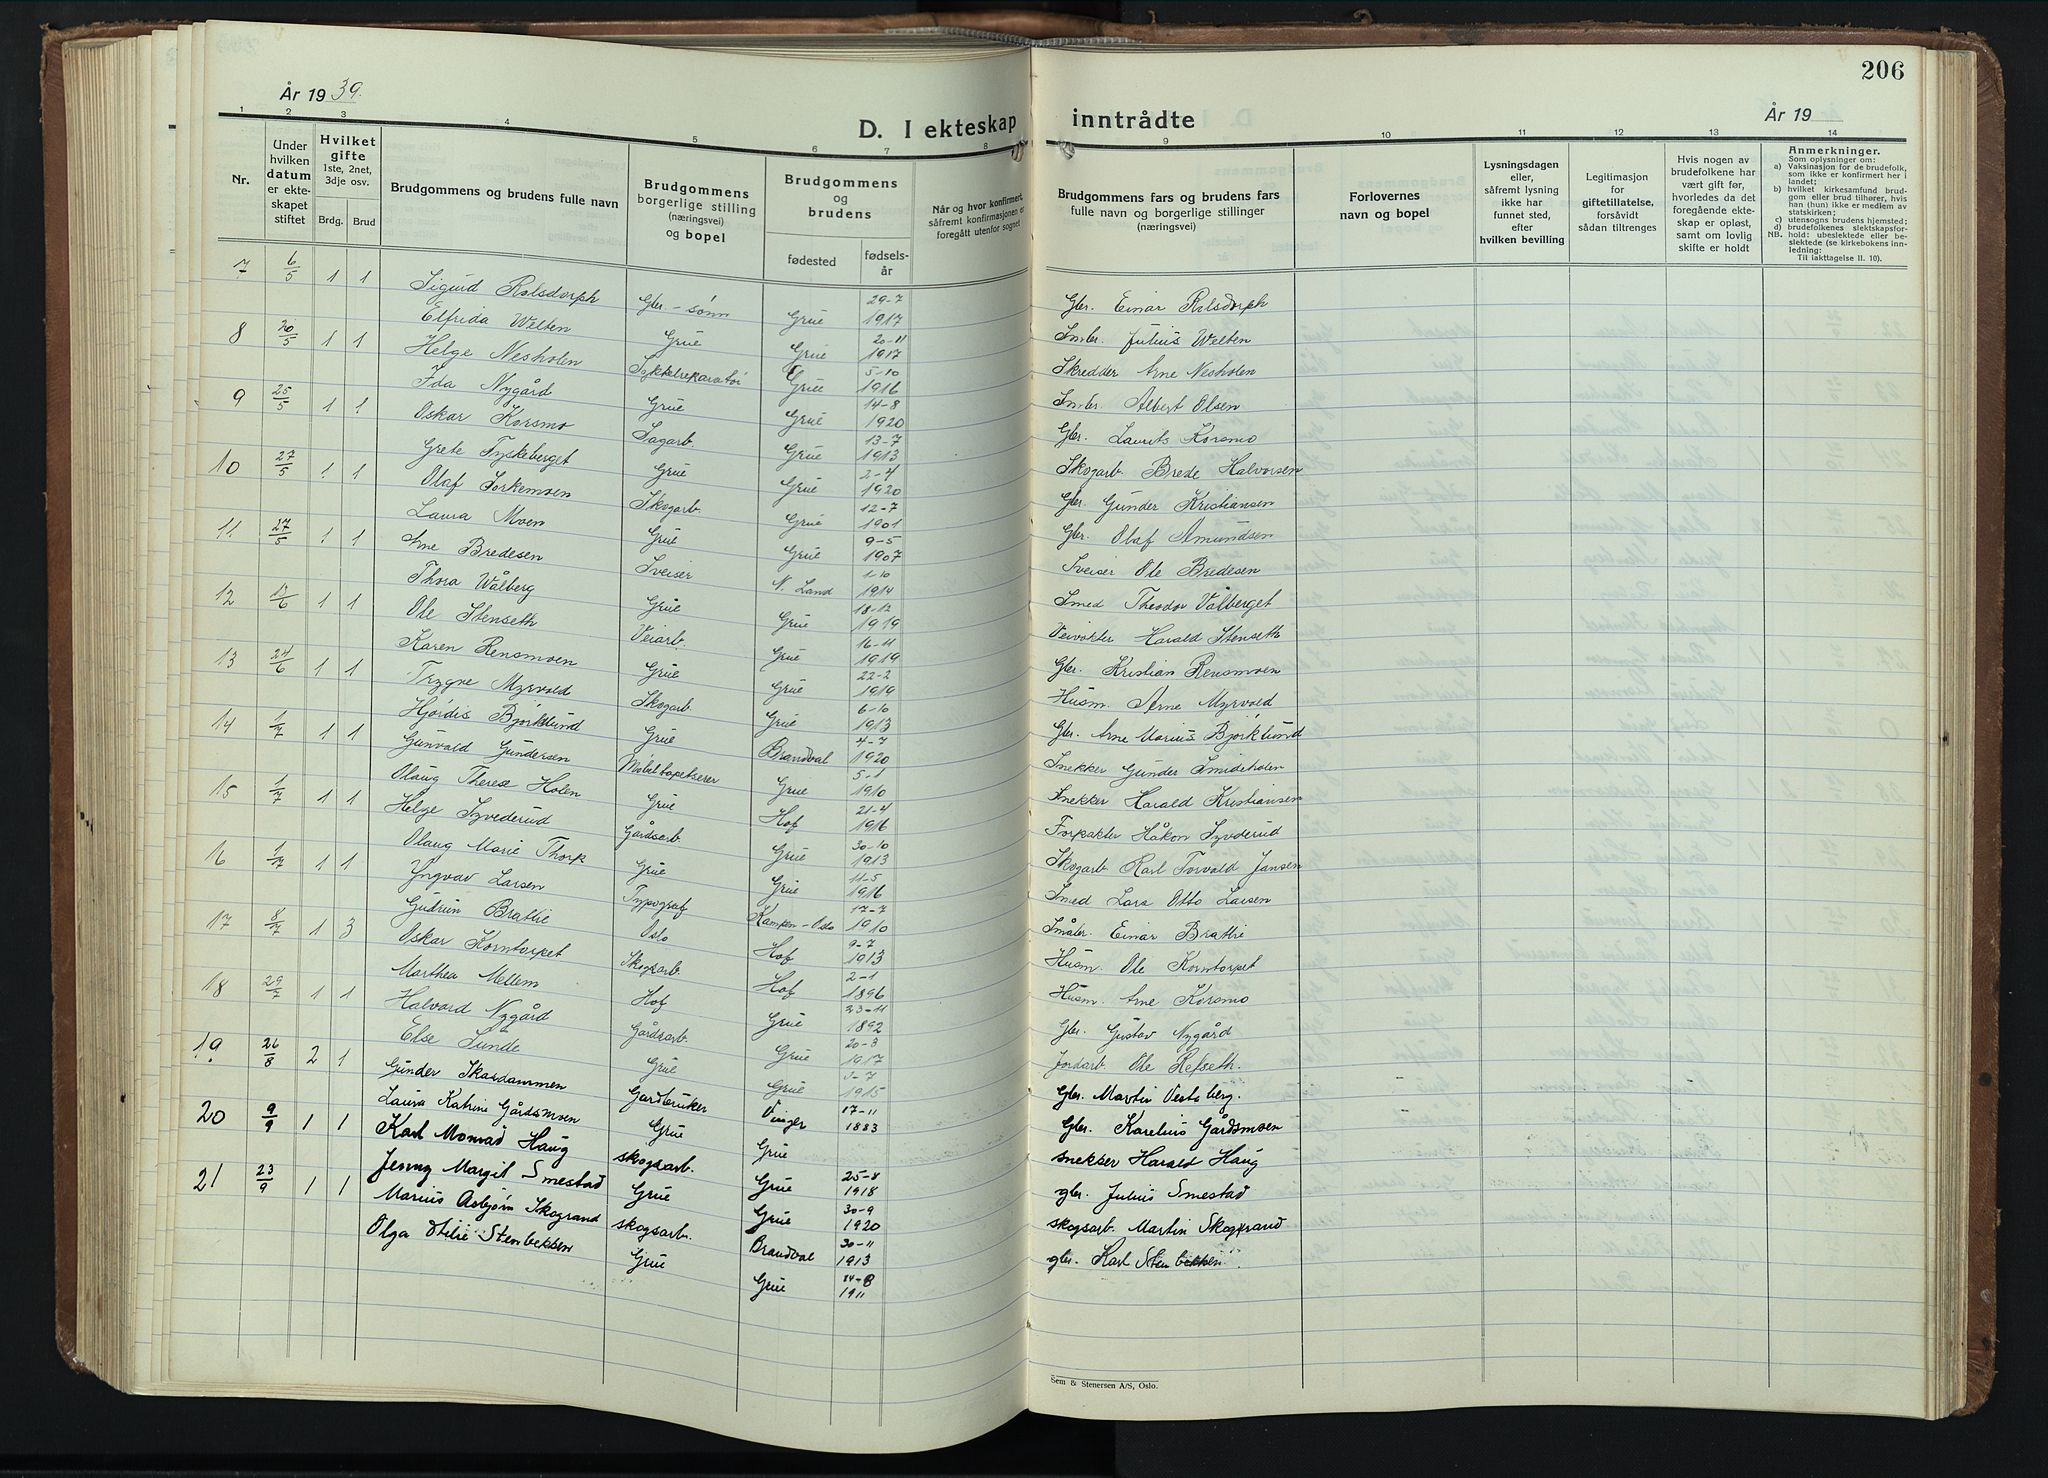 År 1939.
D. I ekteskap inntrådte
206
År 19
1 2 3 4 5 6 7 8 9 10 11 12 13 14
Nr.
Under hvilken datum er ekteskapet stiftet
Hvilket gifte 1ste, 2net, 3dje osv.
Brdg. Brud
Brudgommens og brudens fulle navn
Brudgommens borgerlige stilling (næringsvei) og bopel
Brudgommens og brudens
fødested
fødselsår
Når og hvor konfirmert, såfremt konfirmasjonen er foregått utenfor sognet
Brudgommens fars og brudens fars fulle navn og borgerlige stillinger (næringsvei)
Forlovernes navn og bopel
Lysningsdagen eller, såfremt lysning ikke har funnet sted, efter hvilken bevilling
Legitimasjon for giftetillatelse, forsåvidt sådan tiltrenges
Hvis nogen av brudefolkene har vært gift før, hvorledes da det foregående ekteskap er opløst, samt om lovlig skifte er holdt
Anmerkninger.
Som oplysninger om:
a) Vaksinasjon for de brudefolk, som ikke er konfirmert her i landet;
b) hvilket kirkesamfund brudgom eller brud tilhører, hvis han (hun) ikke er medlem av statskirken;
c) utensogns brudens hjemsted;
d) brudefolkenes slektskapsforhold: ubeslektede eller beslektede (se kirkebokens innledning:
NB. Til iakttagelse II. 10).
7 6/5 1 1 Sigurd Rolsdorph Gbr.-sønn Grue 29-7 1917 Gbr. Einar Rolsdorph
Elfrida Welten Grue Grue 20-11 1917 Småbr. Julius Welten
8 20/5 1 1 Helge Nesholen Sykkelreparatør Grue 5-10 1916 Skredder Arne Nesholen
Ida Nygård Grue Grue 14-8 1920 Småbr. Albert Olsen
9 25/5 1 1 Oskar Korsmo Sagarb. Grue 13-7 1913 Gbr. Laurits Korsmo
Grete Tyskeberget Grue Grue 2-4 1920 Skogarb. Brede Halvorsen
10 27/5 1 1 Olaf Torkemoen Skogarb. Grue 12-7 1901 Gbr. Gunder Kristiansen
Laura Moen Grue Grue 9-5 1907 Gbr. Olaf Amundsen
11 27/5 1 1 Arne Bredesen Sveiser N. Land 1-10 1914 Sveiser Ole Bredesen
Thora Wålberg Grue Grue 18-12 1919 Smed Theodor Vålberget
12 1 1 Ole Stenseth Veiarb. Grue 16-11 1919 Veivokter Harald Stenseth
Karen Rensmoen Grue Grue 22-2 1919 Gbr. Kristian Rensmoen
13 24/6 1 1 Trygve Myrvold Skogarb. Grue 6-10 1913 Husm. Arne Myrvold
Hjørdis Bjørklund Grue Brandval 4-7 1920 Gbr. Arne Marius Bjørklund
14 1/7 1 1 Gunvald Gundersen Møbeltapetserer Grue 5-1 1910 Snekker Gunder Smideholen
Olaug Therese Holen Grue Hof 21-4 1916 Snekker Harald Kristiansen
15 1/7 1 1 Helge Syverud Gårdsarb. Grue 30-10 1913 Forpakter Håkon Syverud
Olaug Marie Thorp Grue Grue 11-5 1916 Skogarb. Karl Torvald Jansen
16 1/7 1 1 Yngvar Larsen Typograf Kampen - Oslo 17-7 1910 Smed Lars Otto Larsen
Gudrun Brattli Oslo Hof 9-7 1913 Småbr. Einar Brattli
17 8/7 1 3 Oskar Korntorpet Skogsarb. Hof 2-1 1896 Husm. Ole Korntorpet
Marthea Mellem Hof Grue 23-11 1892 Husm. Arne Korsmo
18 29/7 1 1 Halvard Nygård Gårdsarb. Grue 20-3 1917 Gbr. Gustav Nygård
Else Lunde Grue Grue 3-7 1915 Jordarb. Ole Refseth.
19 26/8 2 1 Gunder Skardammen Gardbruker Vinger 17-11 1883 Gbr. Martin Vestaberg.
Laura Katrine Gårdsmoen Grue Grue Gbr. Karelius Gårdsmoen
20 9/9 1 1 Karl Monrad Haug skogsarb. Grue 25-8 1918 snekker Harald Haug
Jenny Margit Smestad Grue Grue 30-9 1920 gbr. Julius Smestad
21 23/9 1 1 Marius Asbjørn Skogrand skogsarb. Brandval 30-11 1913 skogsarb. Martin Skogrand
Olga Otilie Stenbekken Grue Grue 24-8 1911 gbr. Karl Stenbekken
Sem & Stenersen A/S, Oslo.